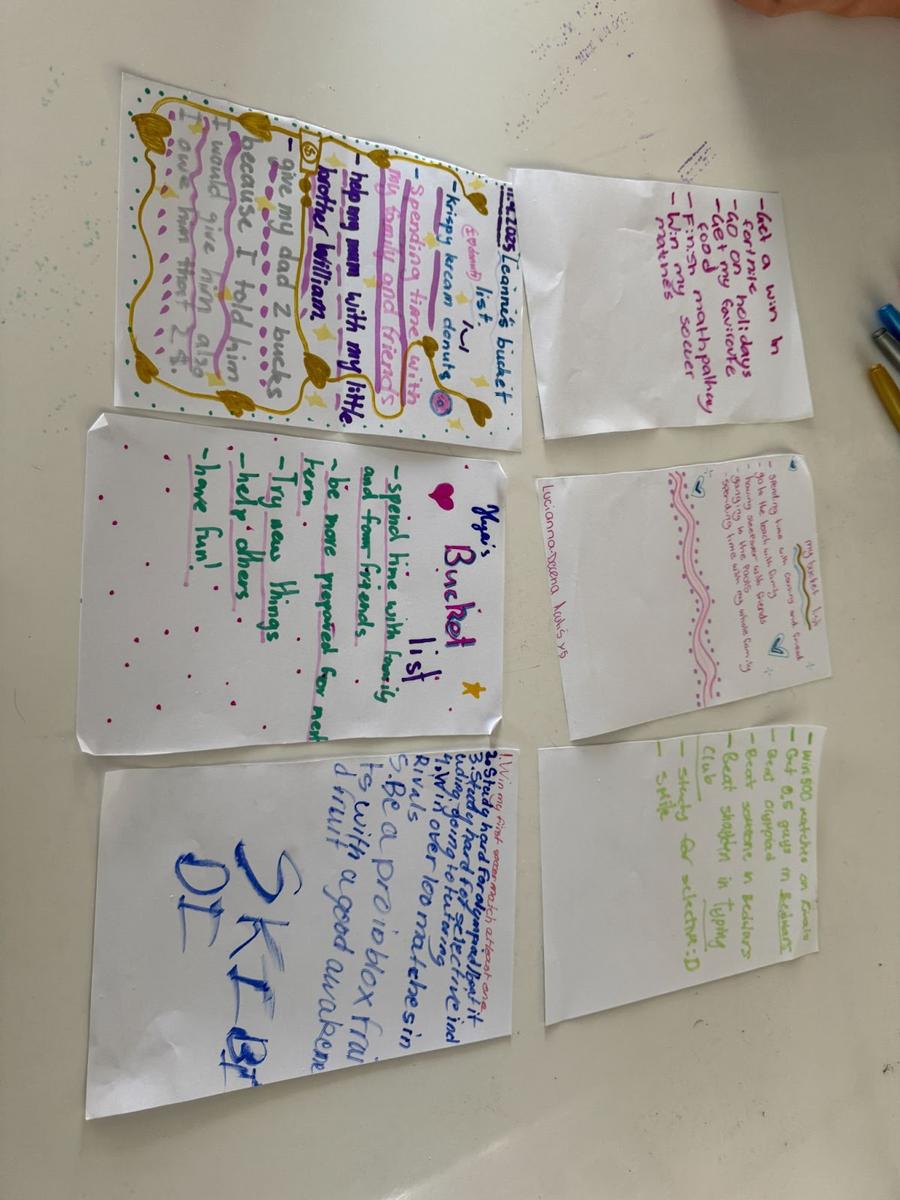 - Get a win in
fortnite
- GO on holidays
- Get my faviroute
food
- Finish mathpathay
- Win my soccer
matches
my bucket list
- spending time with
- go to the beach with family
- having sleepover with friends
- spending time with my whole family
- win 500 matches on rivals
- Get 0.5 guys in Bedwars
- Beat olympoad
- Beat someone in Bedwars
- Beat in Typing
Club
- study for selective :D
- smile
11.4.2025 Leanne's bucket
list.
- krispy kream donuts
- Spending time with
my family and friends
- help my mum with my little
brother William
- give my dad 2 bucks
because I told him
I would give him also
I owe him that 2 $.
Bucket
list
- spend time with family
and from friends
- be more prepared for next
term
- Try new things
- help others
- have fun!
1. Win my first soccer match atleast one
2. Study hard for olympiad/beat it
3. Study hard for selective incl
uding going to tutoring
4. Win over 100 matches in
Rivals
5. Be a pro i blox frui
ts with a good awakene
d fruit
SKIBI
DI